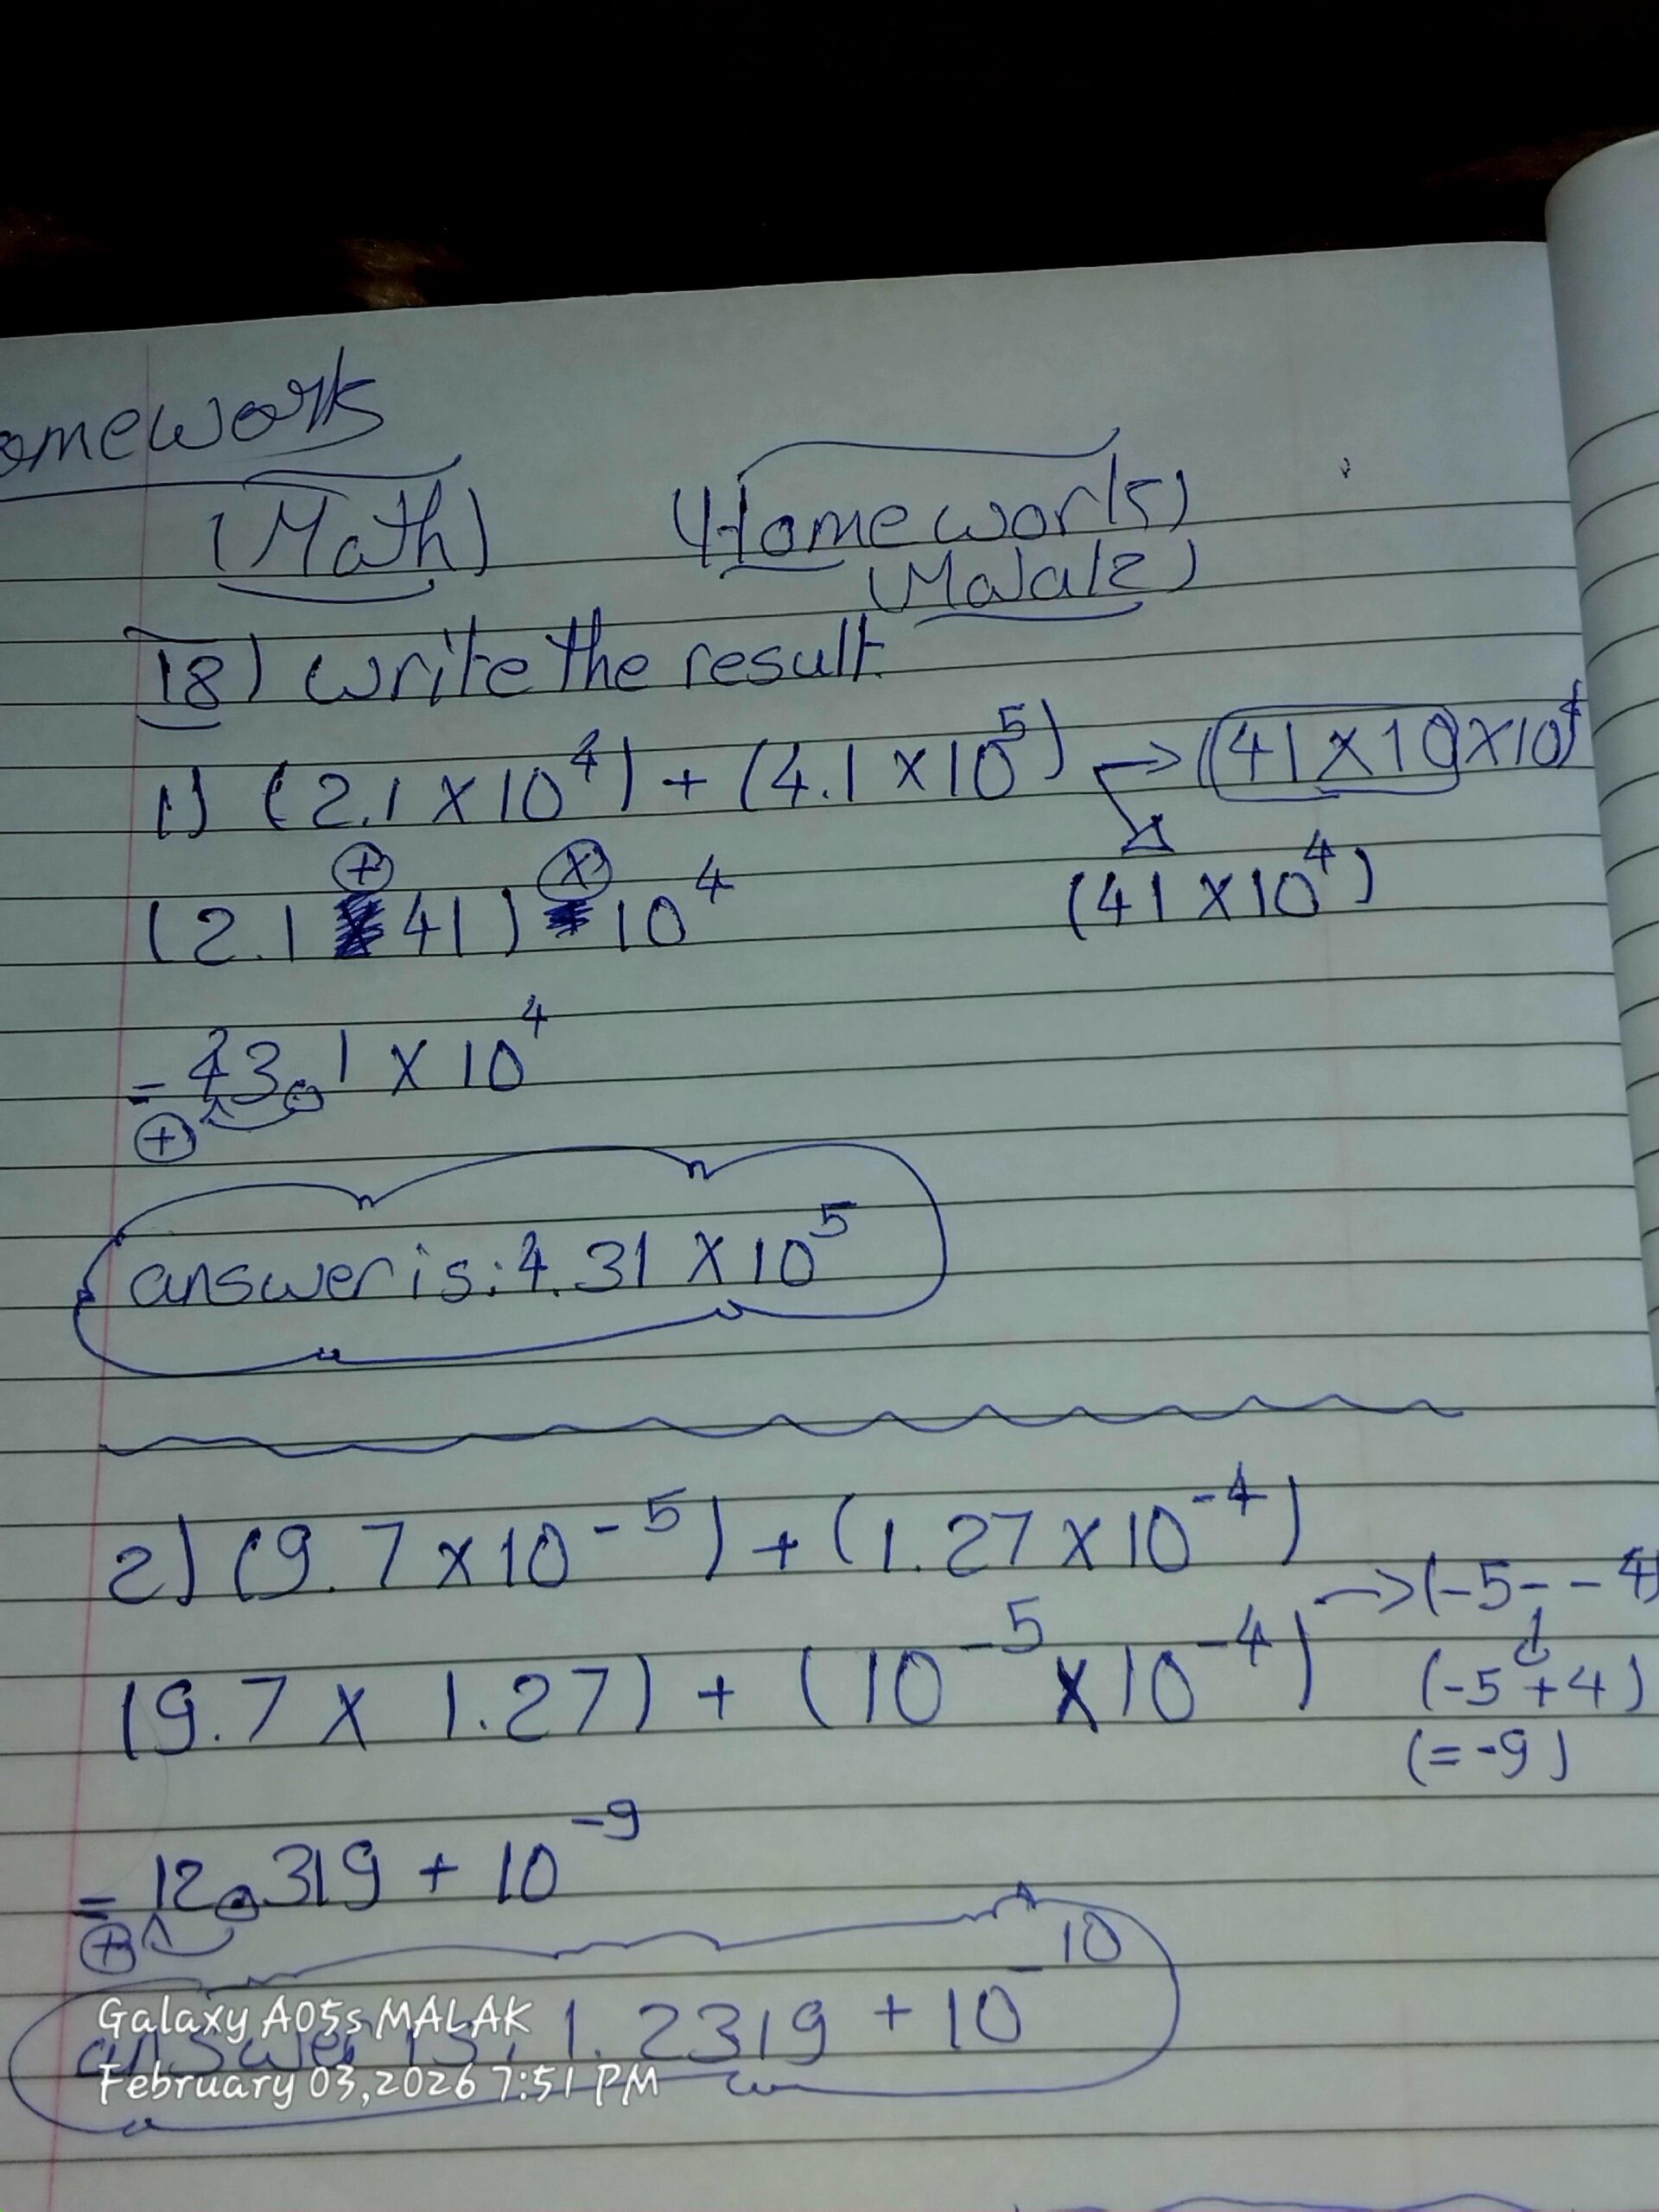 omework
(Math) (Homework)
(Malak)
18) write the result.
1) (2.1 × 10^4) + (4.1 × 10^5) → (41 × 10) × 10^4
(41 × 10^4)
(+) (×)
(2.1 41) 10^4
= 43.1 × 10^4
(+)
answer is: 4.31 × 10^5
2) (9.7 × 10^-5) + (1.27 × 10^-4)
→ (-5 - - 4)
(9.7 × 1.27) + (10^-5 × 10^-4)
(-5 + 4)
(= -9)
= 12.319 + 10^-9
(+)
answer is: 1.2319 + 10^-10
Galaxy A05s MALAK
February 03,2026 7:51 PM